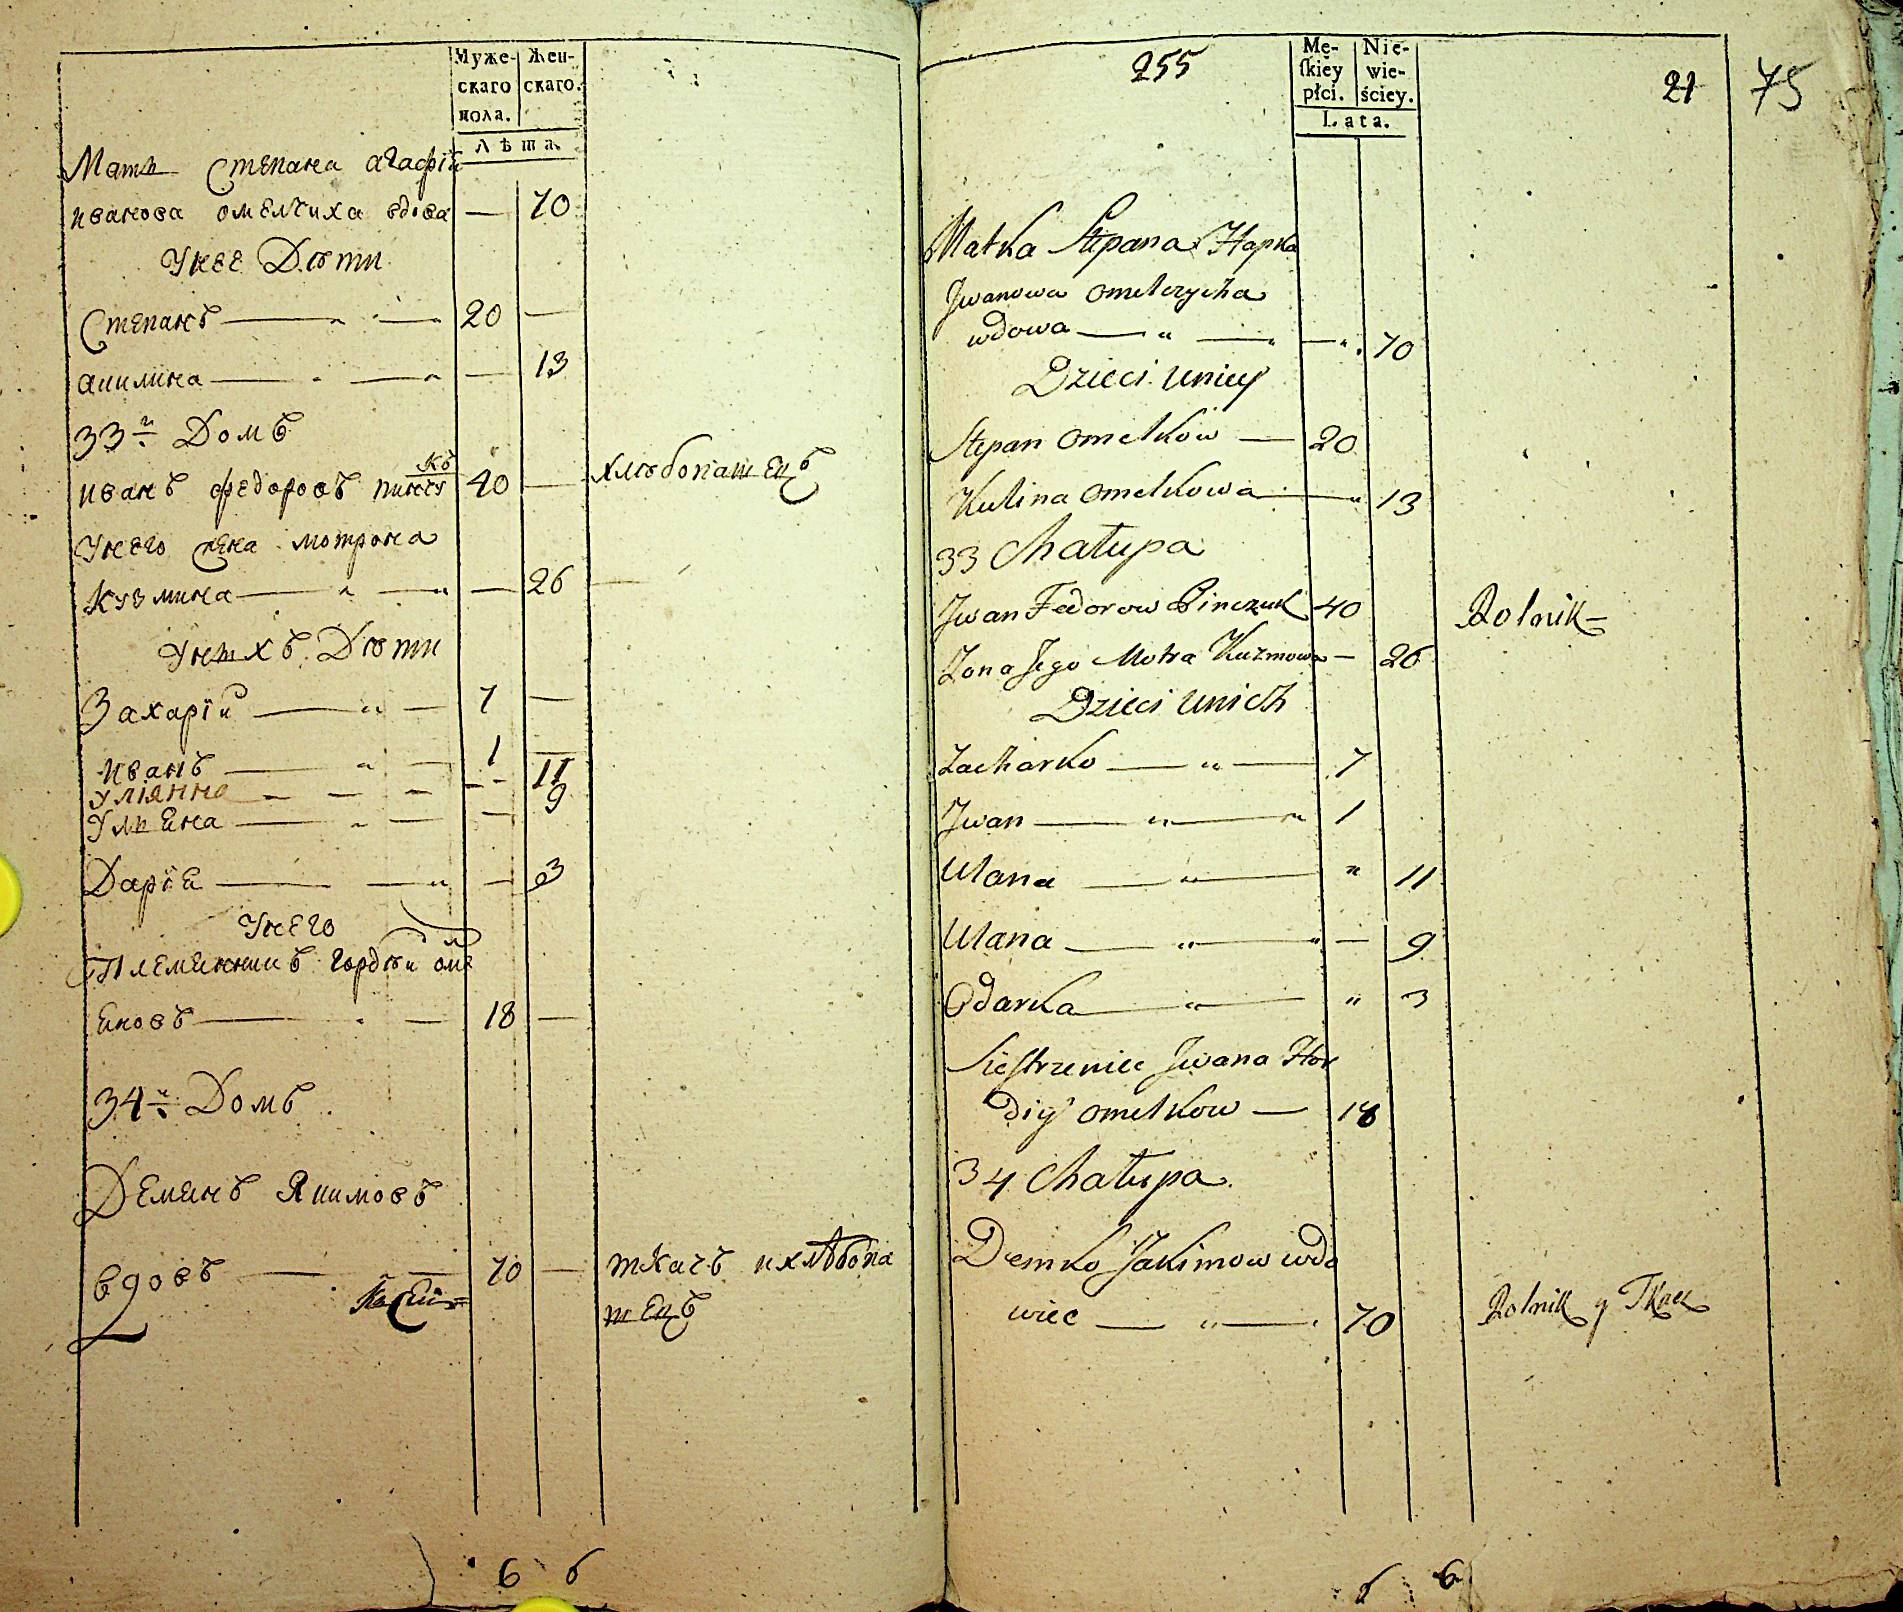 Муже-
скаго
пола.
Жен-
скаго.
Лѣта.
Мать Степана агафiи
иванова омелчиха вдова — 70
Унее Дѣти
Степанъ — „ — 20 —
акилина — „ — — 13
33й Домъ
иванъ федоровъ пинчукъ 40 — хлѣбопашецъ
Унего жена мотрона
Кузмина — „ — — 26 —
Унихъ Дѣти
Захарiй — „ — 7 —
иванъ — „ — 1 —
Улiянна — — — — 11
Ульена — „ — — 9
Дарiа — „ — 3
Унего
Племенникъ Гордѣй омел
еновъ — „ — 18 —
34й Домъ
Демянъ Якимовъ
вдовъ — „ — 70 — ткачъ ихлѣбопа
шецъ
6 6
255
21
75
Mę-
ſkiey
płci.
Nie-
wie-
ściey.
Lata.
Matka Stepana Hapka
Jwanowa Omelczycha
wdowa — „ — — „ 70
Dzieci uniey
Stepan Omelkow — 20
Kulina Omelkowa — „ 13
33 Chałupa
Jwan Fedorow Pinczuk 40 Rolnik —
Żona Jego Motra Kuzmowa — 26
Dzieci unich
Zacharko — „ — 7
Jwan — „ — „ 1
Ulana — „ — „ 11
Ulana — „ — „ — 9
Odarka — „ — „ 3
Siestrzeniec Jwana Hor
diy Omelkow — 18
34 Chałupa
Demko Jakimow wdo
wiec — „ — 70 Rolnik y Tkacz
6 6